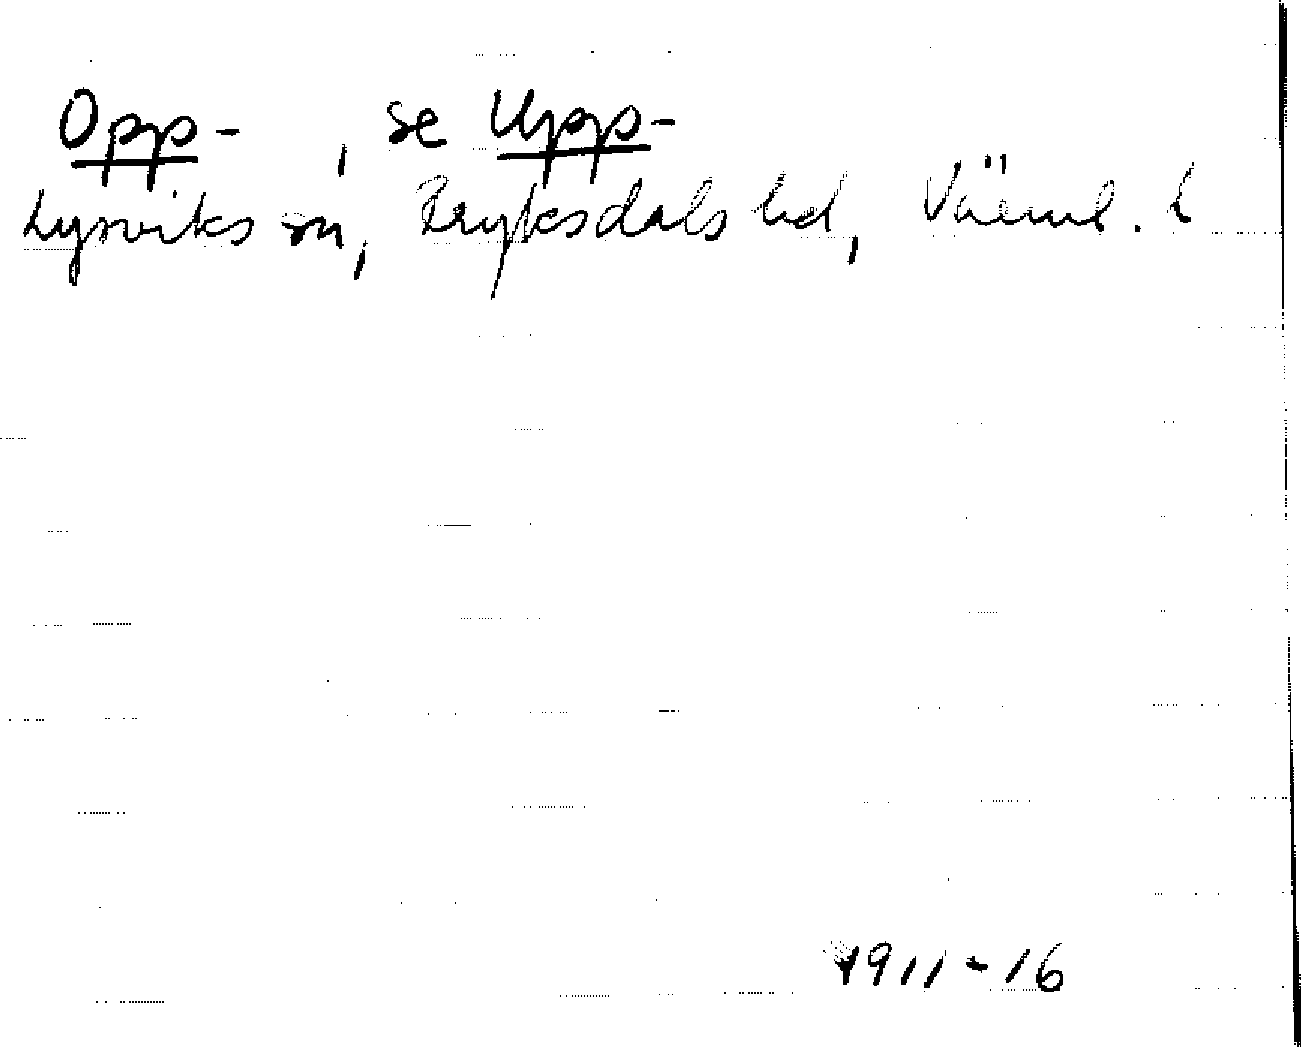 Opp-, se Upp-
Lysviks sn, Fryksdals hd, Värml. l
1911-16